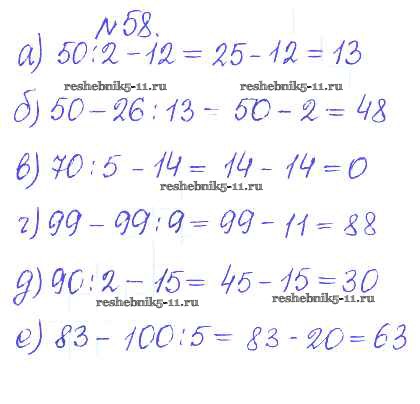 №58.
а) 50:2-12 = 25-12 = 13
reshebnik5-11.ru
б) 50-26:13 - 50-2 = 48
в) 70:5 - 14 = 14-14=0
reshebnik5-11.ru
г) 99-99:9 = 99-11 = 88
д) 90:2-15 = 45-15=30
reshebnik5-11.ru reshebnik5-11.ru
е) 83- 100:5= 83-20=63